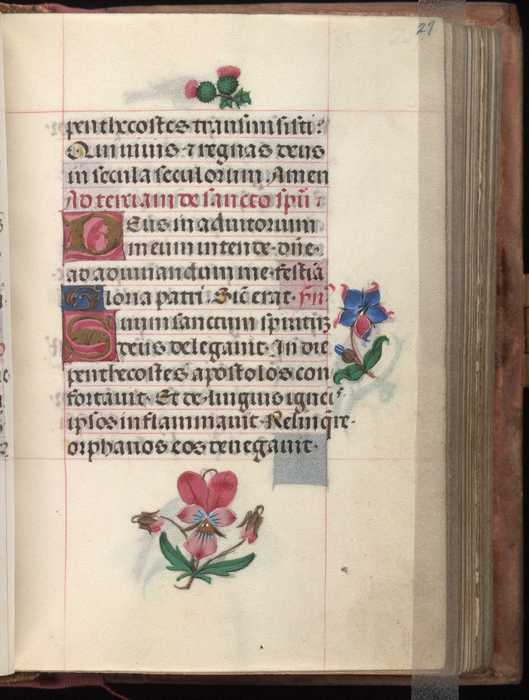 27
penthecostes transmisisti:
Qui vivis ⁊ regnas deus
in secula seculorum. Amen
Ad terciam de sancto spũ:
Deus in adiutorium
meum intende. dñe.
ad adiuuandum me festiã
Gloria patri. Sic̃ erat. hñ⁹
Suum sanctum spiritũ
deus delegauit. In die
penthecostes apostolos con
fortauit. Et de linguis ignei⁹
ipsos inflammauit. Relinq̃re.
orphanos eos denegauit.